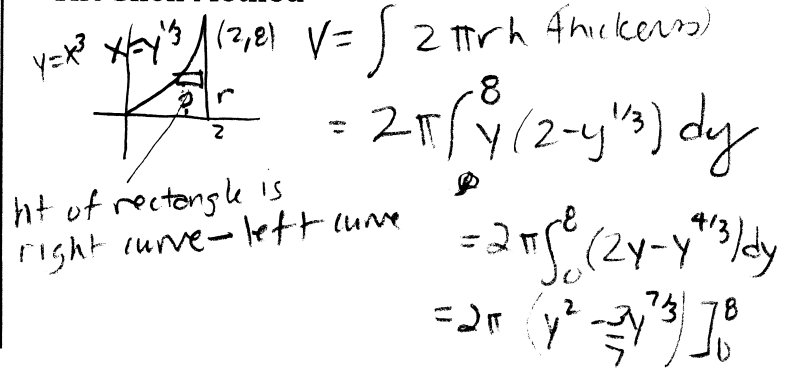 y=x³ x=y^1/3 (2,8) V= ∫ 2πrh thickness)
r
2
= 2π∫ 8 y(2-y^1/3) dy
ht of rectangle is
right curve-left curve
=2π∫ 8 0 (2y-y^4/3)dy
=2π (y² -3/7 y^7/3)]8 0